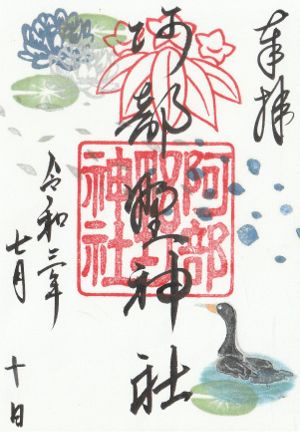 奉拝
阿部野神社
阿部野神社
令和三年
七月
十日